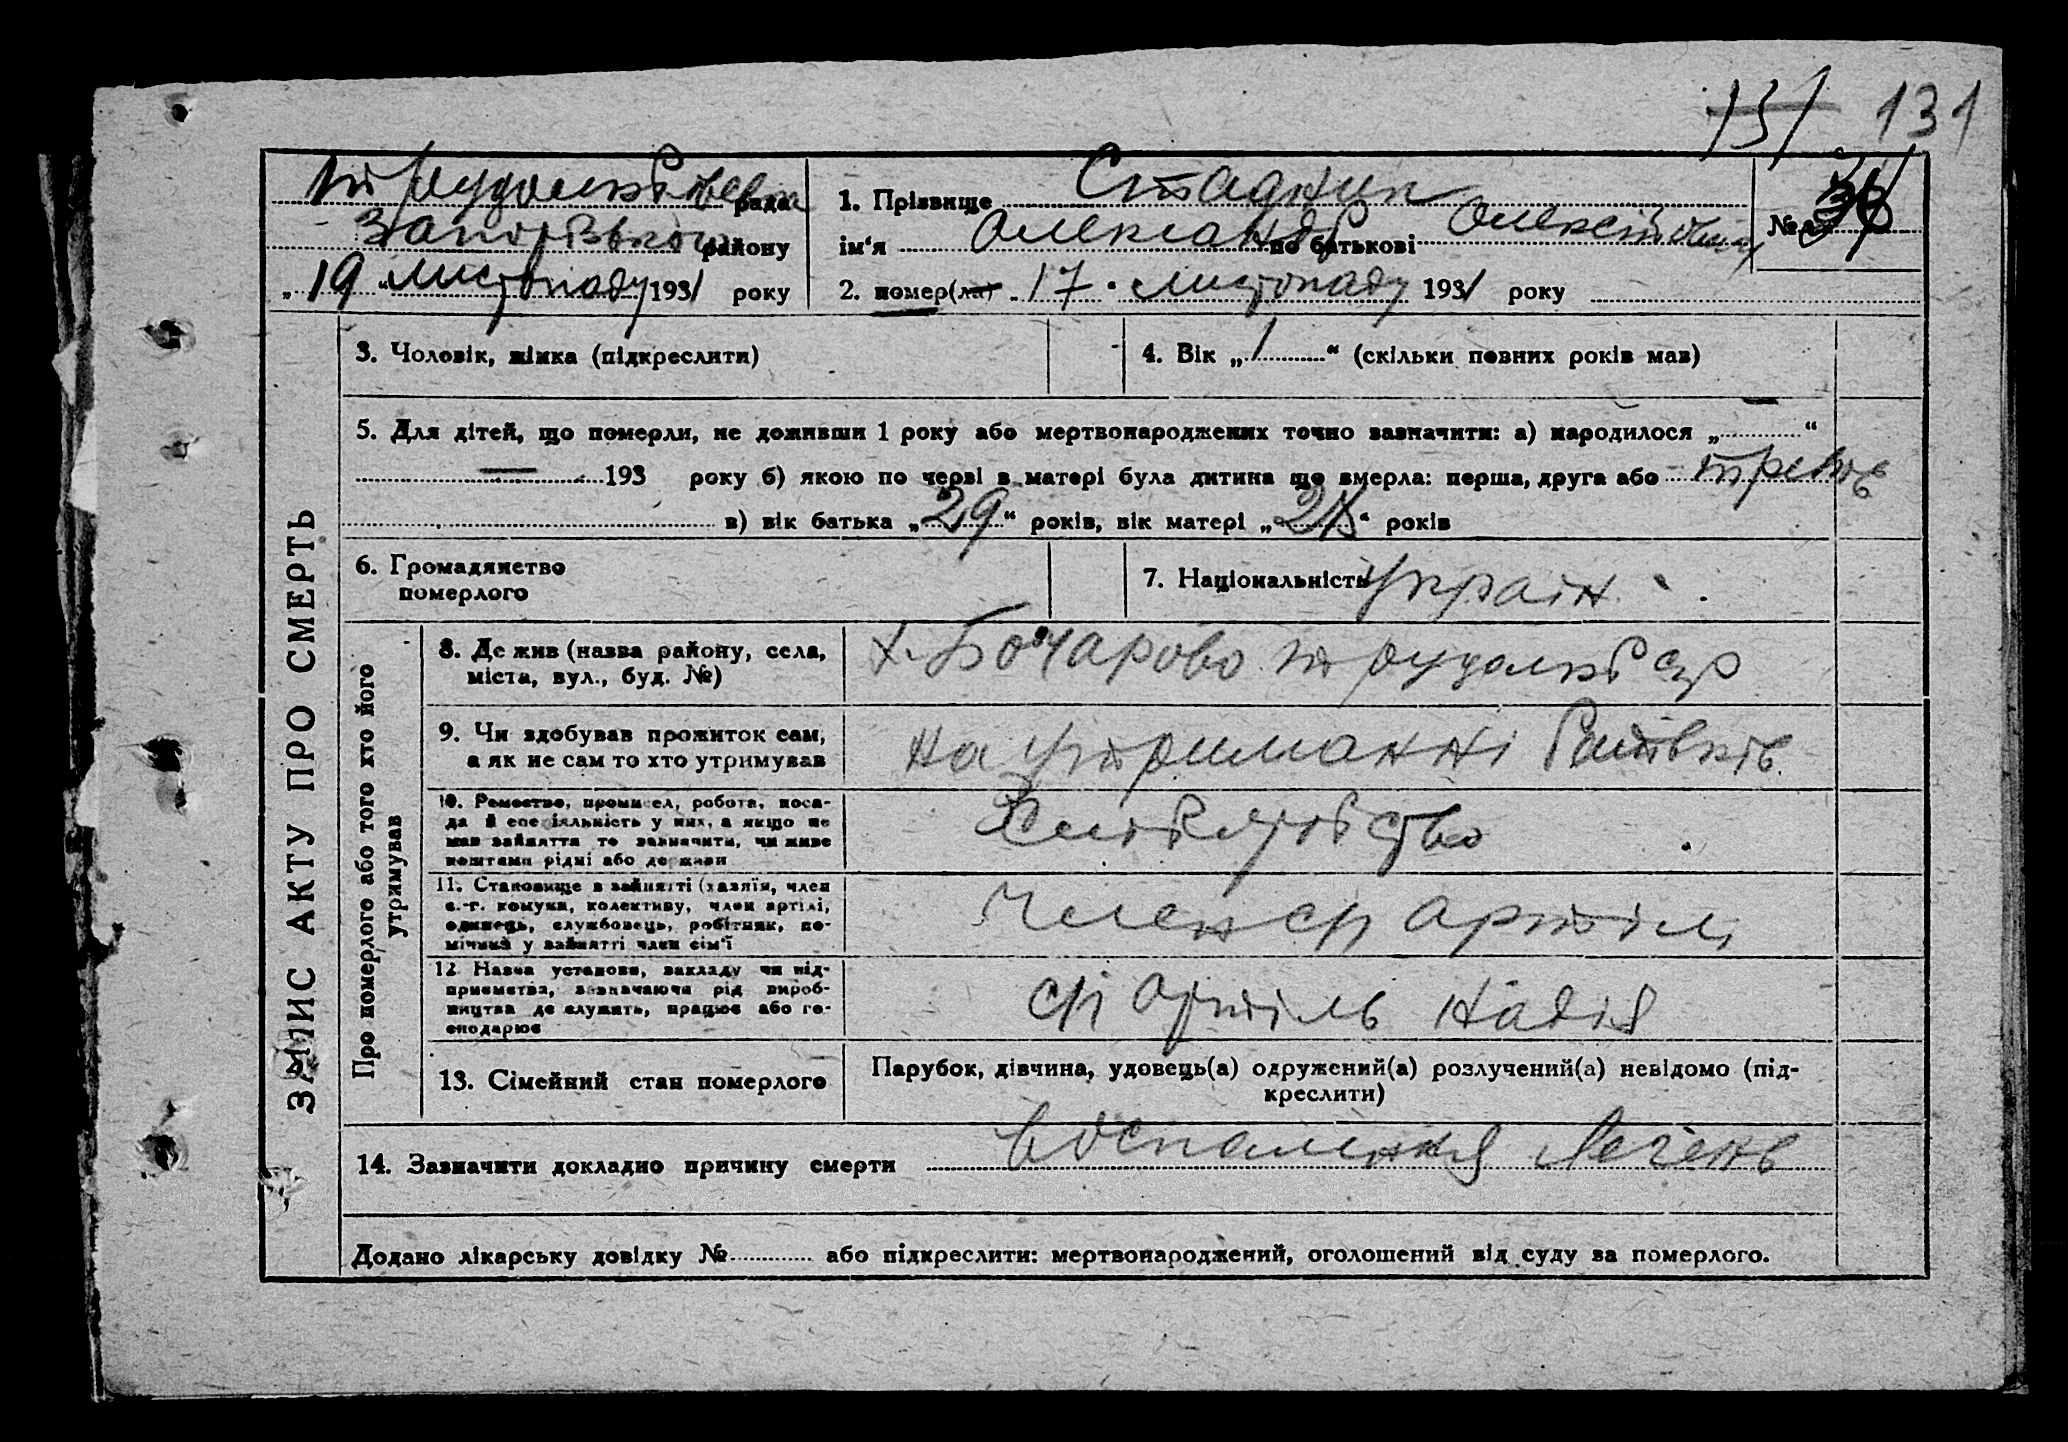 131 131
рада
1. Прізвище Стадник
№
району
ім'я Олександр по батькові Олексійович
„19“ листопаду 1931 року
2. помер(ла) „17“ листопаду 1931 року
3. Чоловік, жінка (підкреслити)
4. Вік „1“ (скільки повних років мав)
5. Для дітей, що померли, не доживши 1 року або мертвонароджених точно зазначити: а) народилося „—“
— 193 року б) якою по черві в матері була дитина що вмерла: перша, друга або
в) вік батька „29“ років, вік матері „“ років
6. Громадянство
померлого
7. Національність україн.
ЗАПИС АКТУ ПРО СМЕРТЬ
Про померлого або того хто його
утримував
8. Де жив (назва району, села,
міста, вул., буд. №)
х. Бочарово
9. Чи здобував прожиток сам,
а як не сам то хто утримував
на утриманні батьків
10. Ремество, промисел, робота, поса-
да й спеціяльність у них, а якщо не
мав заняття то зазначити, чи живе
коштами рідні або держави
11. Становище в занятті (хазяїн, член
с.-г. комуни, колективу, член артілі,
одинець, службовець, робітник, по-
мічний у занятті член сім'ї
Член сг артіли
12. Назва установи, закладу чи під-
приємства, зазначаючи рід вироб-
ництва де служить, працює або го-
сподарює
сг артіль Надія
13. Сімейний стан померлого
Парубок, дівчина, удовець(а) одружений(а) розлучений(а) невідомо (під-
креслити)
14. Зазначити докладно причину смерти воспаления легень
Додано лікарську довідку № або підкреслити: мертвонароджений, оголошений від суду за померлого.